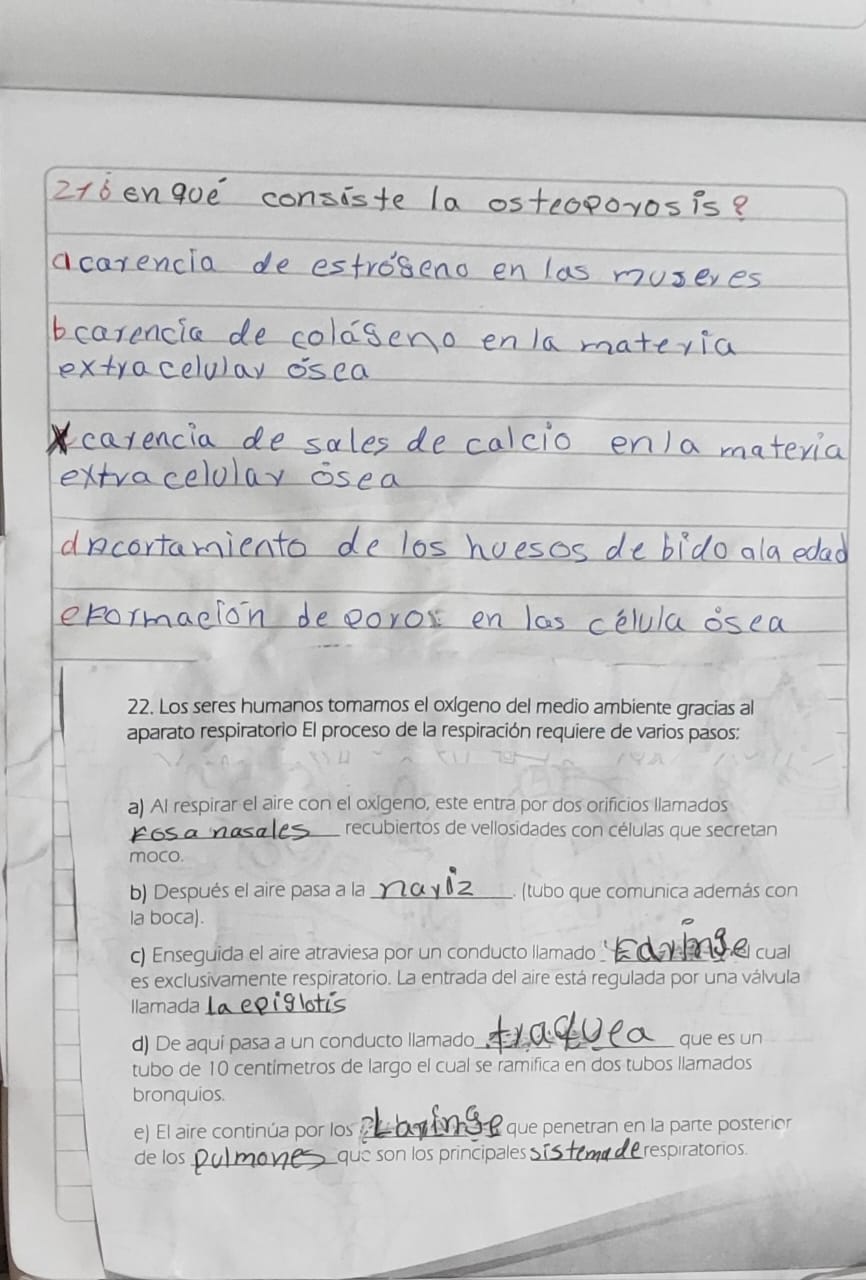 21¿en qué consiste la osteoporosis?
a carencia de estrógeno en las mujeres
b carencia de colágeno en la materia
extracelular ósea
carencia de sales de calcio en la materia
extracelular ósea
d acortamiento de los huesos debido a la edad
e Formación de poros en las célula ósea
22. Los seres humanos tomamos el oxígeno del medio ambiente gracias al
aparato respiratorio El proceso de la respiración requiere de varios pasos:
a) Al respirar el aire con el oxígeno, este entra por dos orificios llamados
Fosa nasales recubiertos de vellosidades con células que secretan
moco.
b) Después el aire pasa a la nariz. (tubo que comunica además con
la boca).
c) Enseguida el aire atraviesa por un conducto llamado Faringe el cual
es exclusivamente respiratorio. La entrada del aire está regulada por una válvula
llamada La epiglotis
d) De aquí pasa a un conducto llamado traquea que es un
tubo de 10 centímetros de largo el cual se ramifica en dos tubos llamados
bronquios.
e) El aire continúa por los Laringe que penetran en la parte posterior
de los pulmones que son los principales sistema de respiratorios.